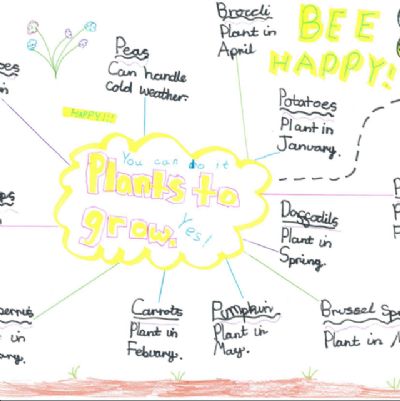 Brocoli
Plant in
April
BEE
HAPPY!
Peas
Can handle
cold weather.
HAPPY!!!
Potatoes
Plant in
January.
You can do it
Plants to
grow.
Yes!
Daffodils
Plant in
Spring.
Carrots
Plant in
Febuary.
Pumpkin
Plant in
May.
Brussel Sp
Plant in